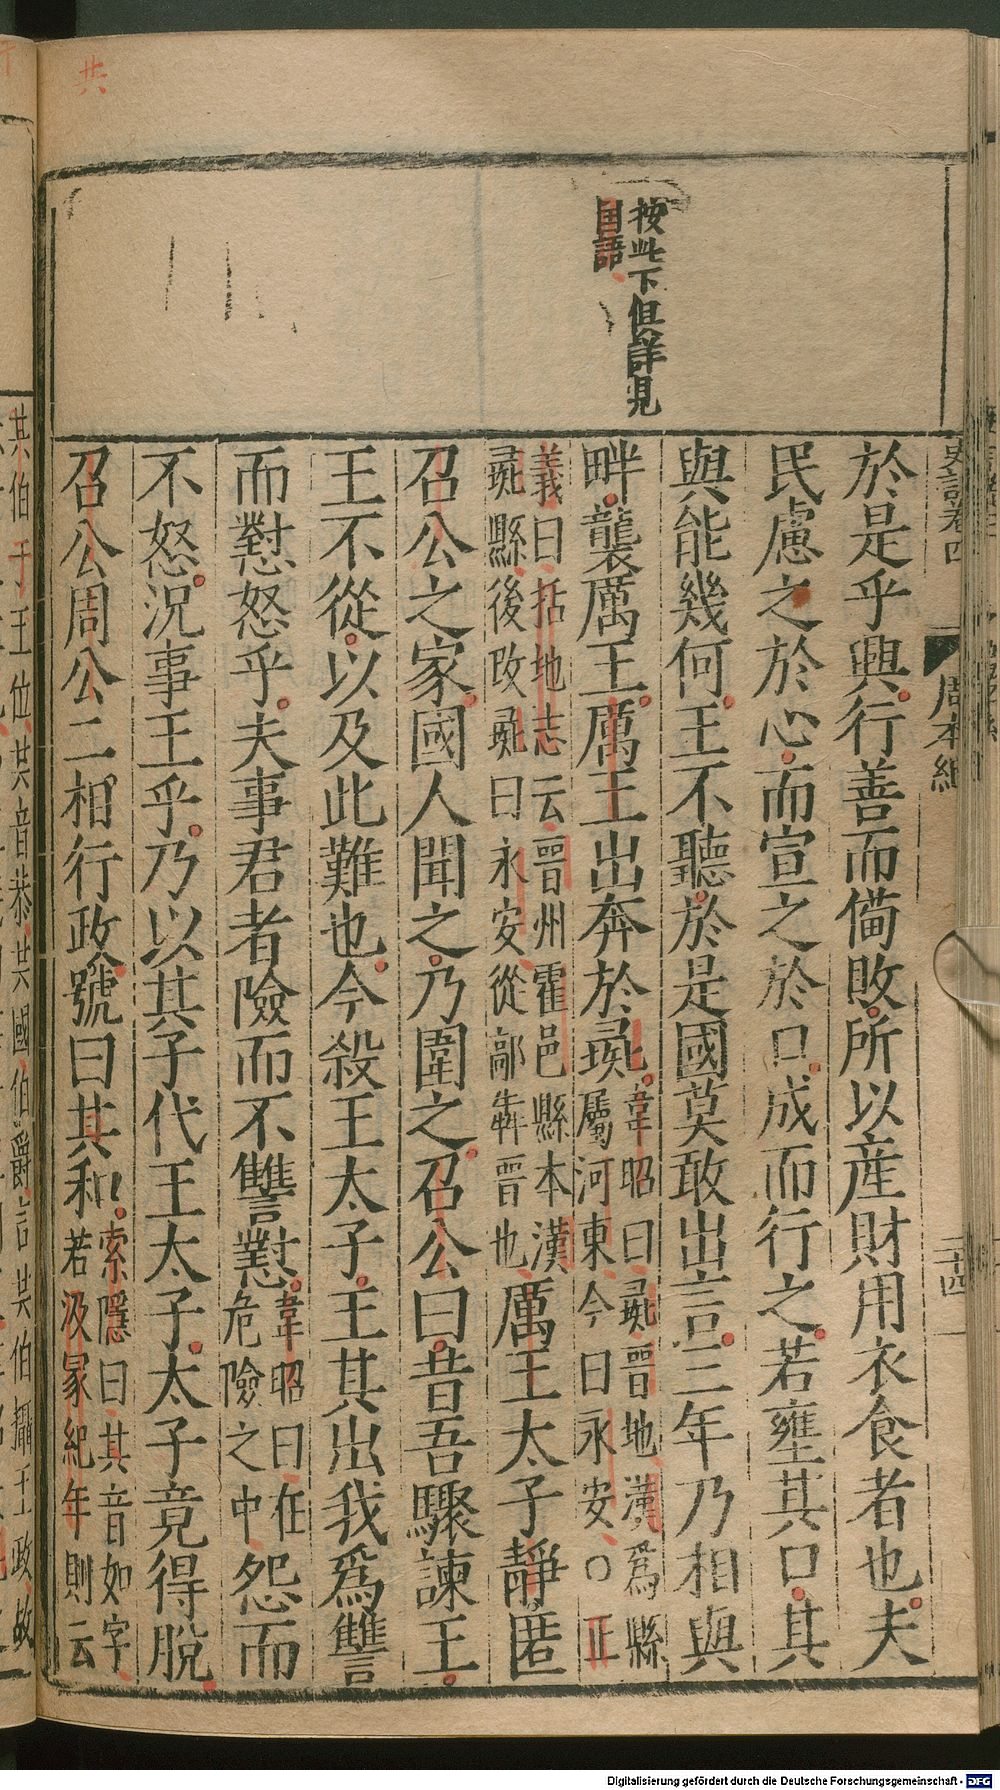 共
按此下但詳見
国語
史記卷四
周本紀
二十四
於是乎興行善而備敗所以産財用衣食者也夫
民慮之於心而宣之於口成而行之若壅其口其
與能幾何王不聽於是國莫敢出言三年乃相與
畔襲厲王厲王出奔於彘韋昭曰彘晉地漢爲縣
屬河東今曰永安○正
義曰括地志云晉州霍邑縣本漢
彘縣後改彘曰永安從鄗犇晉也厲王太子靜匿
召公之家國人聞之乃圍之召公曰昔吾驟諫王
王不從以及此難也今殺王太子王其以我爲讐
而懟怒乎夫事君者險而不讐懟韋昭曰在
危險之中怨而
不怒況事王乎乃以其子代王太子太子竟得脫
召公周公二相行政號曰共和索隱曰共音如字
若汲冢紀年則云
共伯于王位共音恭共國伯爵言共伯攝王政故
Digitalisierung gefördert durch die Deutsche Forschungsgemeinschaft - DFG